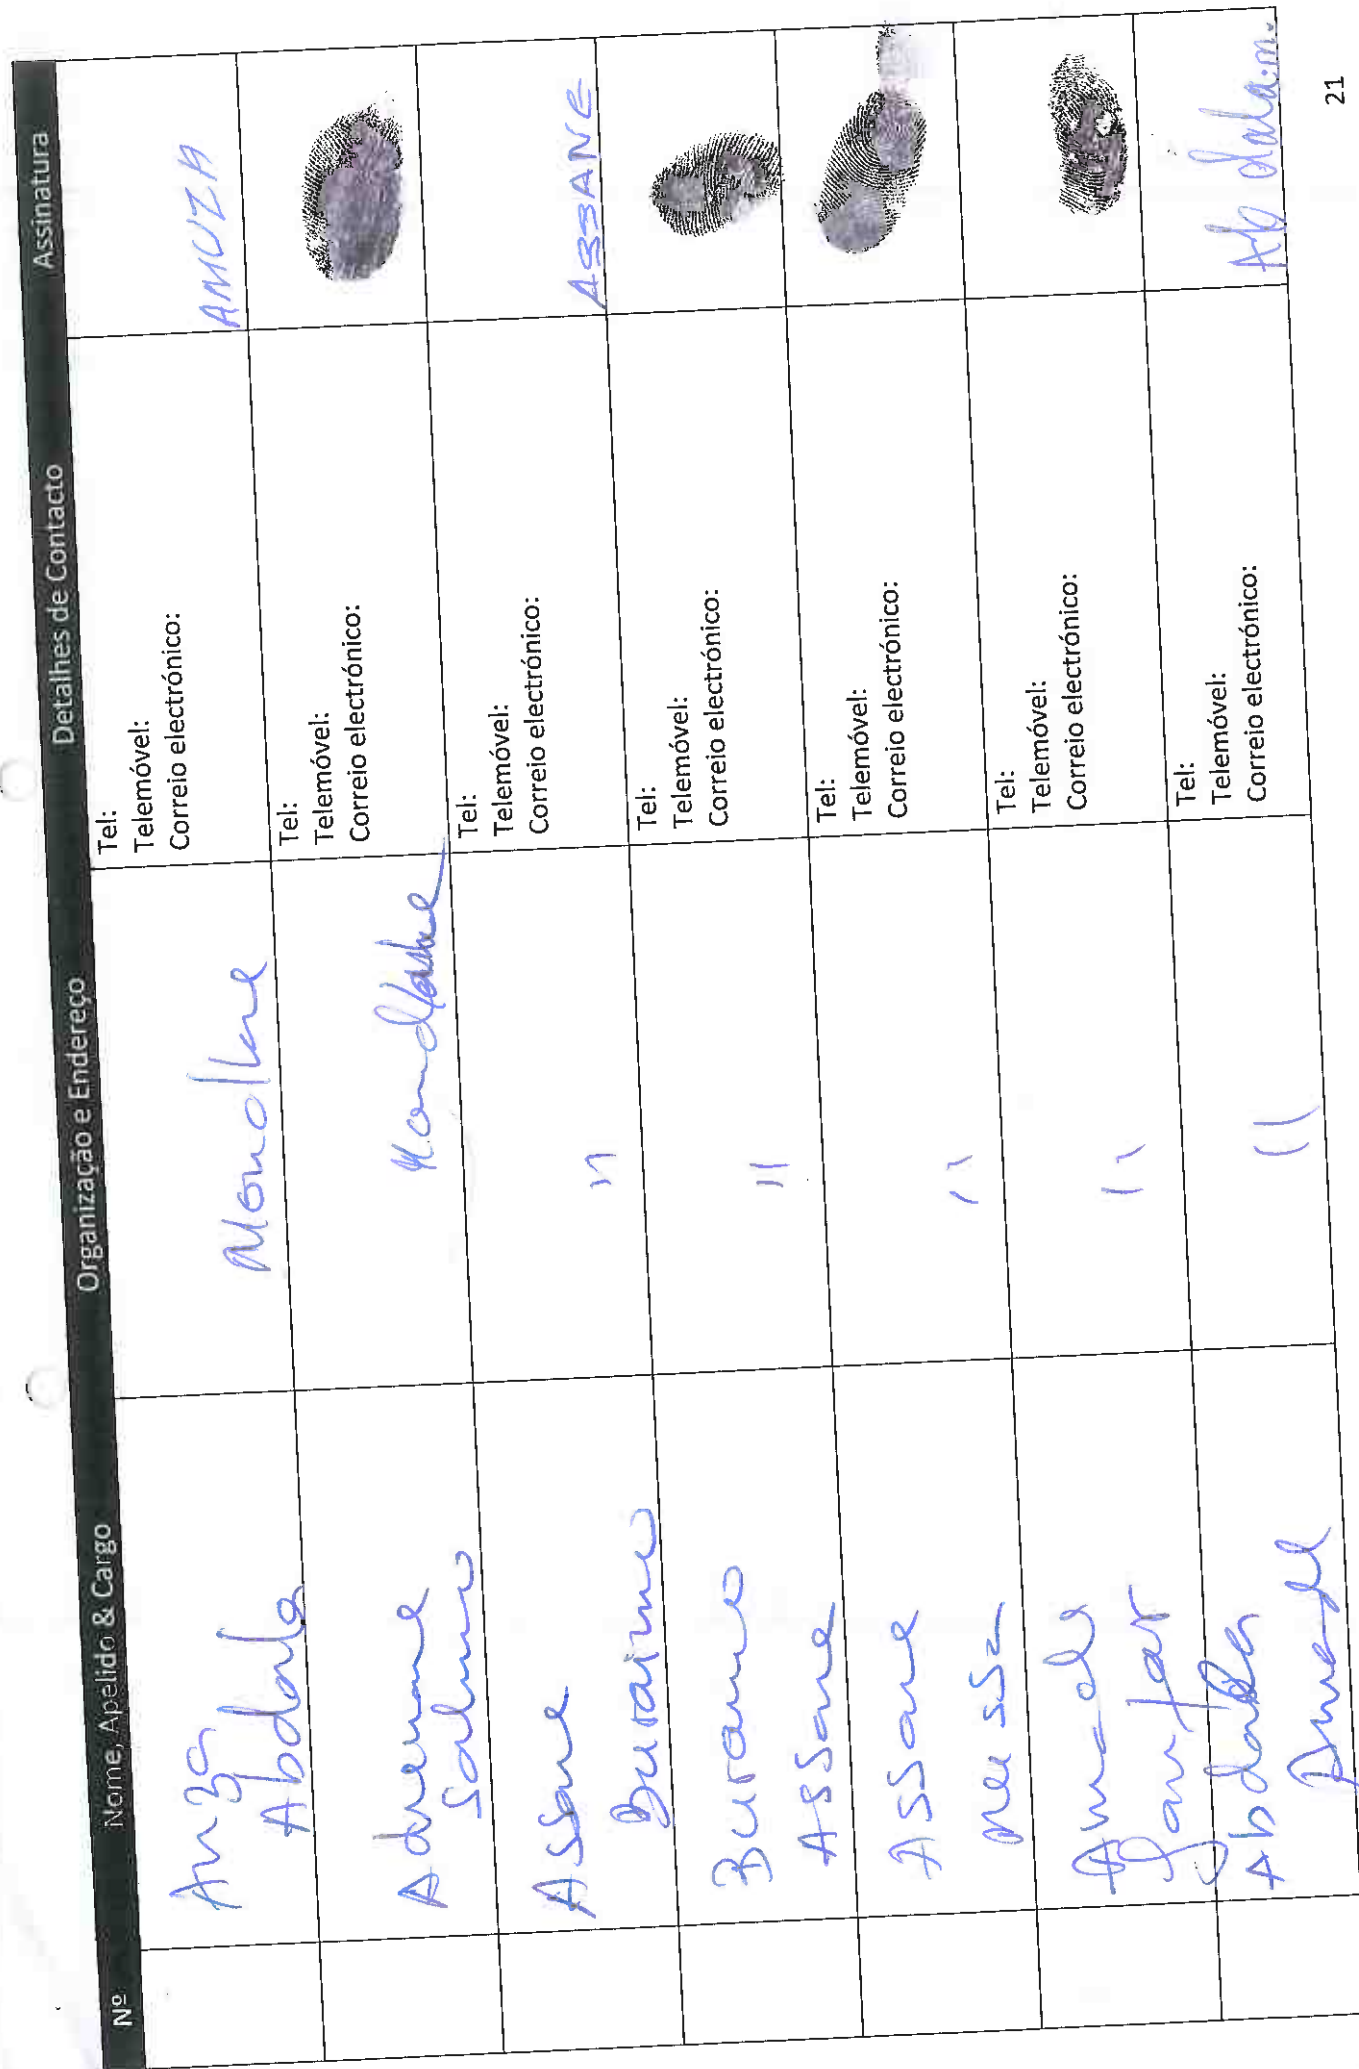 Nº Nome, Apelido & Cargo Organização e Endereço Detalhes de Contacto Assinatura
Anza
Abdala
Mondlane
Tel:
Telemóvel:
Correio electrónico:
AMUZA
Salimo
Mondlane
Tel:
Telemóvel:
Correio electrónico:
Assane
Buraimo
"
Tel:
Telemóvel:
Correio electrónico:
ASSANE
Buramo
Assane
"
Tel:
Telemóvel:
Correio electrónico:
Assane
Mussa
"
Tel:
Telemóvel:
Correio electrónico:
Amade
"
Tel:
Telemóvel:
Correio electrónico:
Abdala
Amade
"
Tel:
Telemóvel:
Correio electrónico:
21